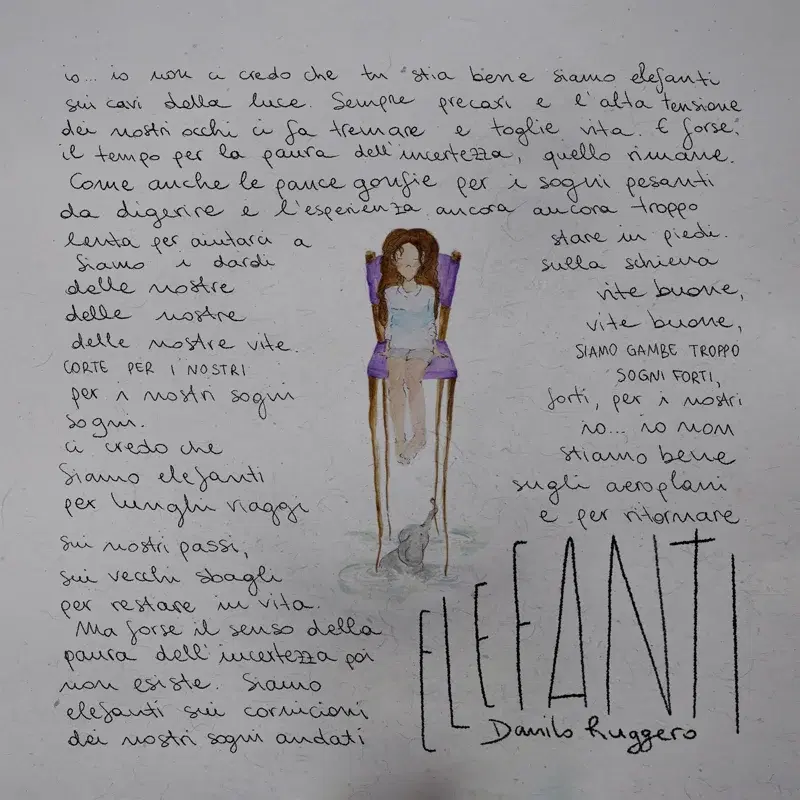 io... io non ci credo che tu stia bene siamo elefanti
sui cavi della luce. Sempre precari e l'alta tensione
dei nostri occhi ci fa tremare e toglie vita. E forse,
il tempo per la paura dell'incertezza, quello rimane.
Come anche le pance gonfie per i sogni pesanti
da digerire e l'esperienza ancora ancora troppo
lenta per aiutarci a stare in piedi.
Siamo i dardi sulla schiena
delle nostre vite buone,
delle nostre vite buone,
delle nostre vite. SIAMO GAMBE TROPPO
CORTE PER I NOSTRI SOGNI FORTI,
per i nostri sogni forti, per i nostri
sogni. io... io non
ci credo che stiamo bene
Siamo elefanti sugli aeroplani
per lunghi viaggi e per ritornare
sui nostri passi,
sui vecchi sbagli
per restare in vita.
Ma forse il senso della
paura dell'incertezza poi
non esiste. Siamo
elefanti sui cornicioni
dei nostri sogni andati
ELEFANTI
Danilo Ruggero